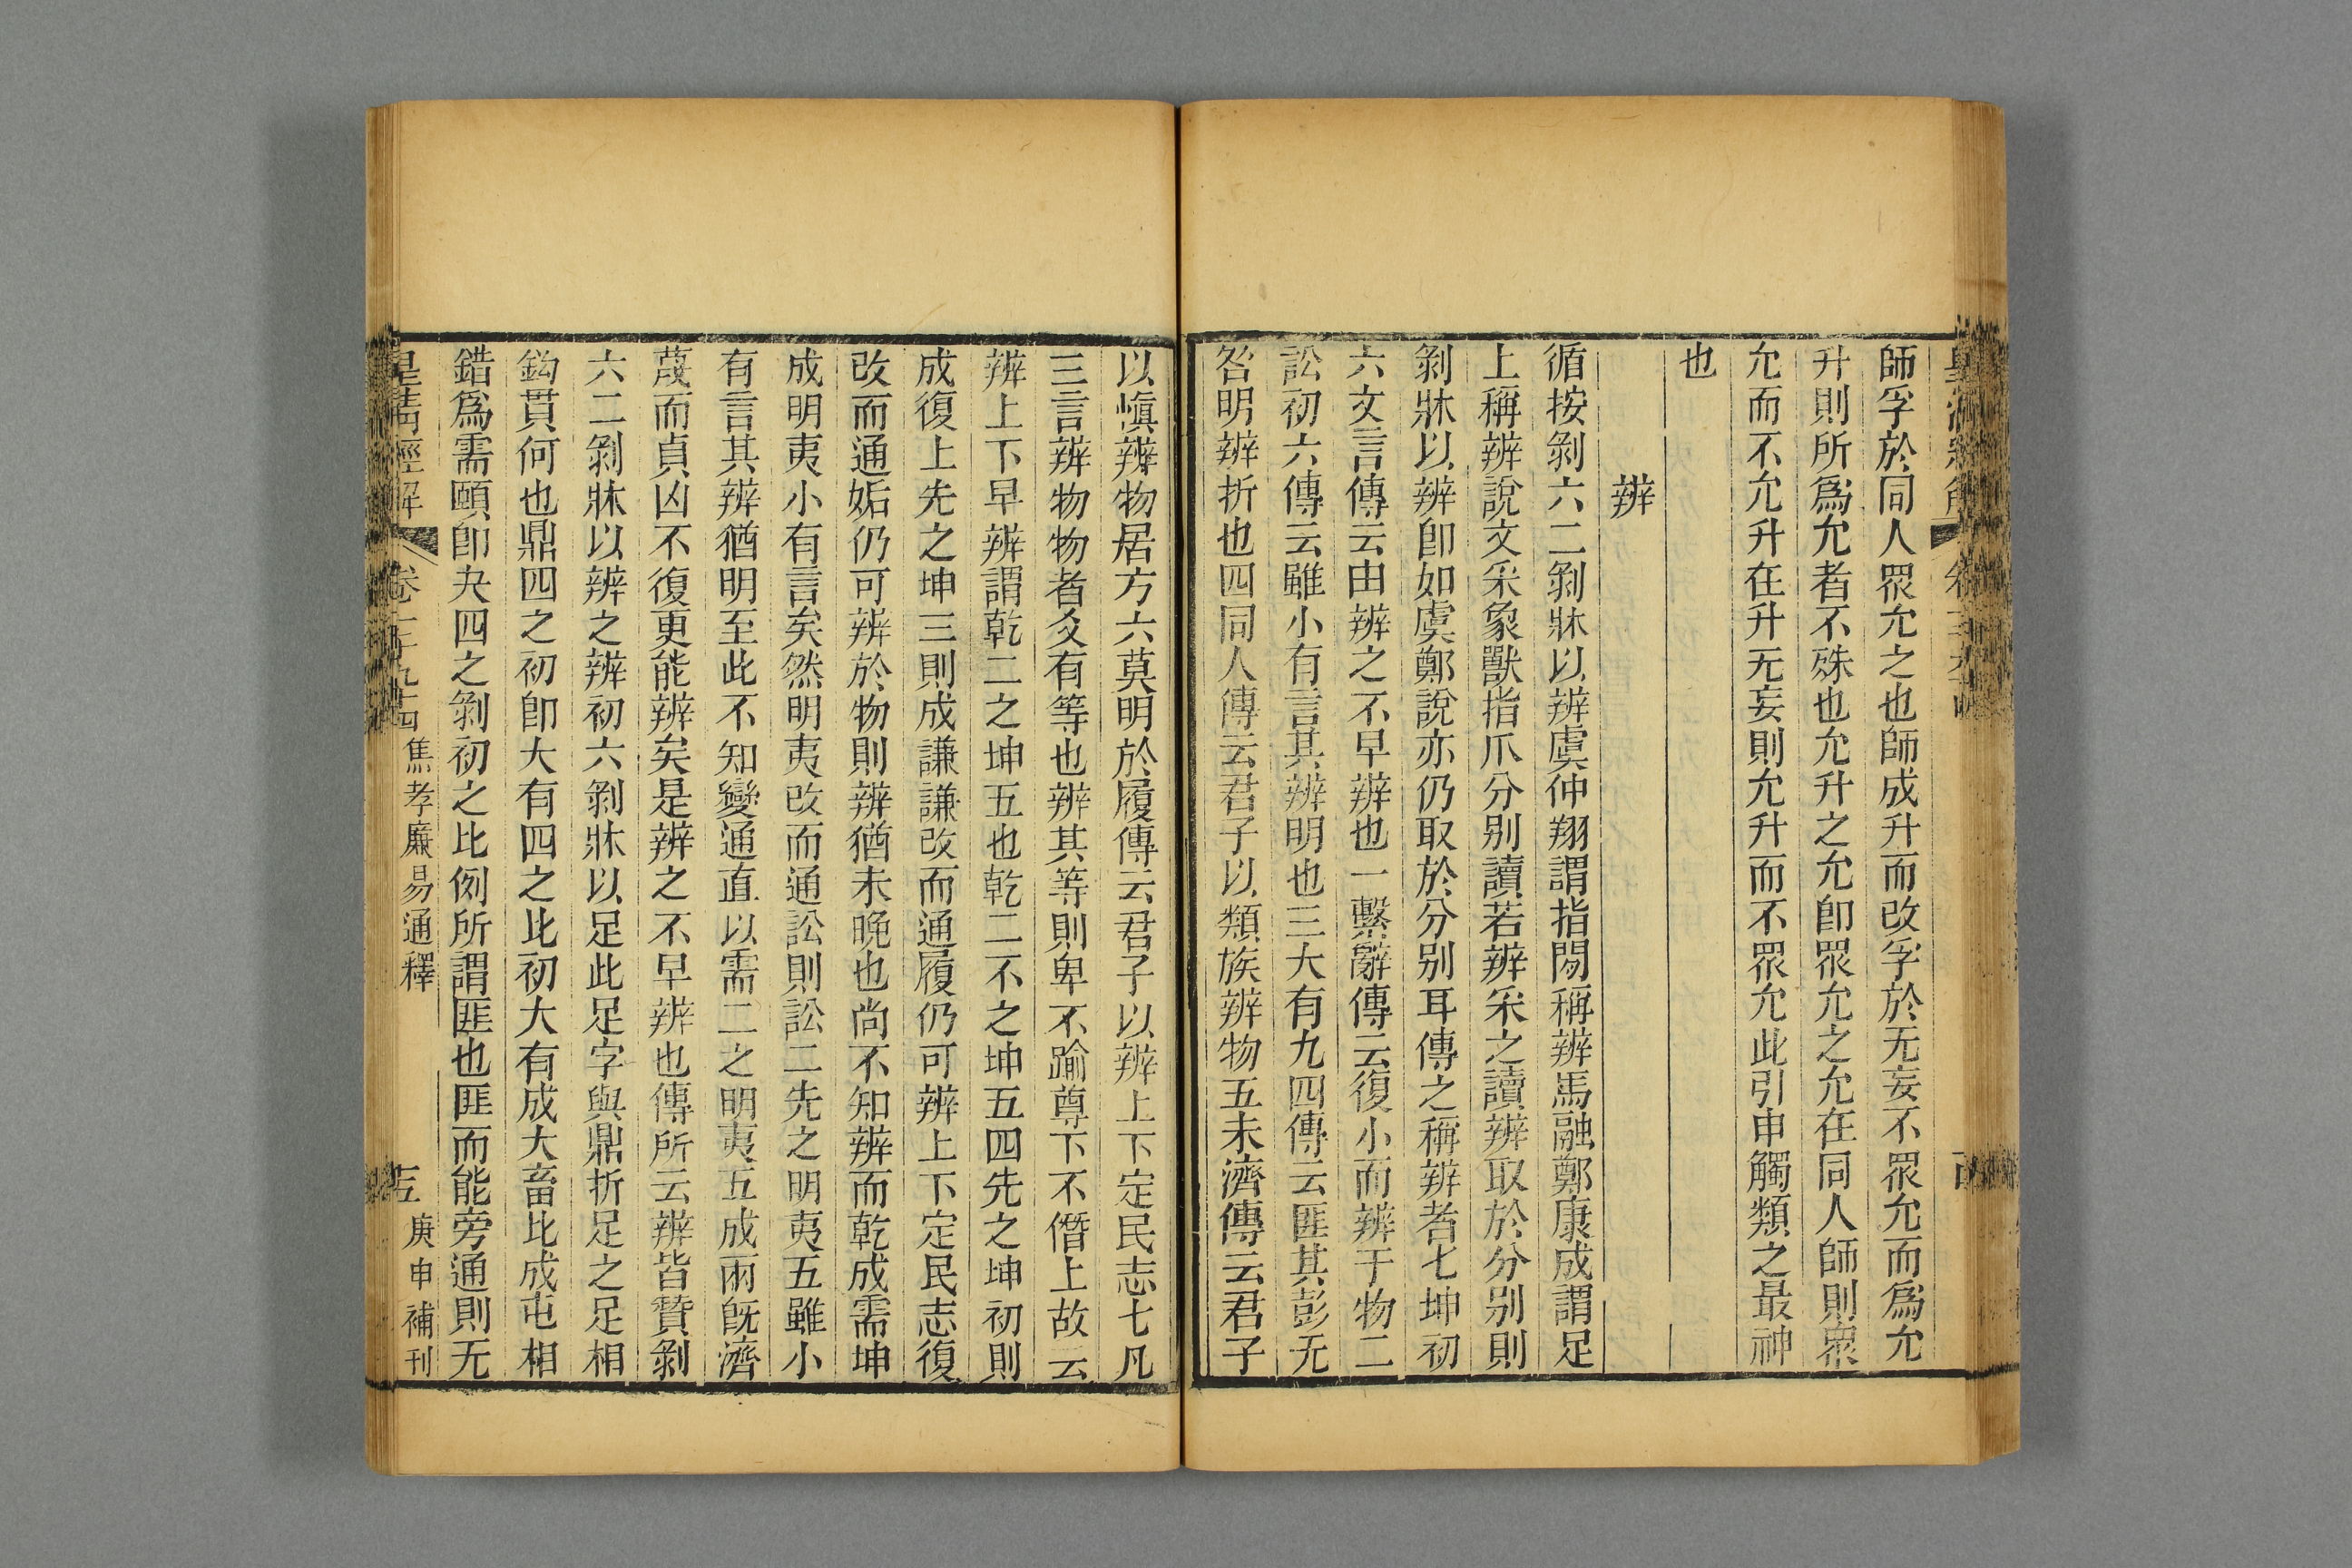 師孚於同人眾允之也師成升而改孚於无妄不眾允而爲允
升則所爲允者不殊也允升之允卽眾允之允在同人師則眾
允而不允升在升无妄則允升而不眾允此引申觸類之最神
也
辨
循按剝六二剝牀以辨虞仲翔謂指間稱辨馬融鄭康成謂足
上稱辨說文釆象獸指爪分别讀若辨釆之讀辨取於分别則
剝牀以辨卽如虞鄭說亦仍取於分别耳傳之稱辨者七坤初
六文言傳云由辨之不早辨也一繫辭傳云復小而辨于物二
訟初六傳云雖小有言其辨明也三大有九四傳云匪其彭无
咎明辨折也四同人傳云君子以類族辨物五未濟傳云君子
以愼辨物居方六莫明於履傳云君子以辨上下定民志七凡
三言辨物物者爻有等也辨其等則卑不踰尊下不僭上故云
辨上下早辨謂乾二之坤五也乾二不之坤五四先之坤初則
成復上先之坤三則成謙謙改而通履仍可辨上下定民志復
改而通姤仍可辨於物則辨猶未晩也尚不知辨而乾成需坤
成明夷小有言矣然明夷改而通訟則訟二先之明夷五雖小
有言其辨猶明至此不知變通直以需二之明夷五成兩旣濟
蔑而貞凶不復更能辨矣是辨之不早辨也傳所云辨皆贊剝
六二剝牀以辨之辨初六剝牀以足此足字與鼎折足之足相
鉤貫何也鼎四之初卽大有四之比初大有成大畜比成屯相
錯爲需頤卽夬四之剝初之比例所謂匪也匪而能旁通則无
皇淸經解
卷一千九十四
焦孝廉易通釋
庚申補刊